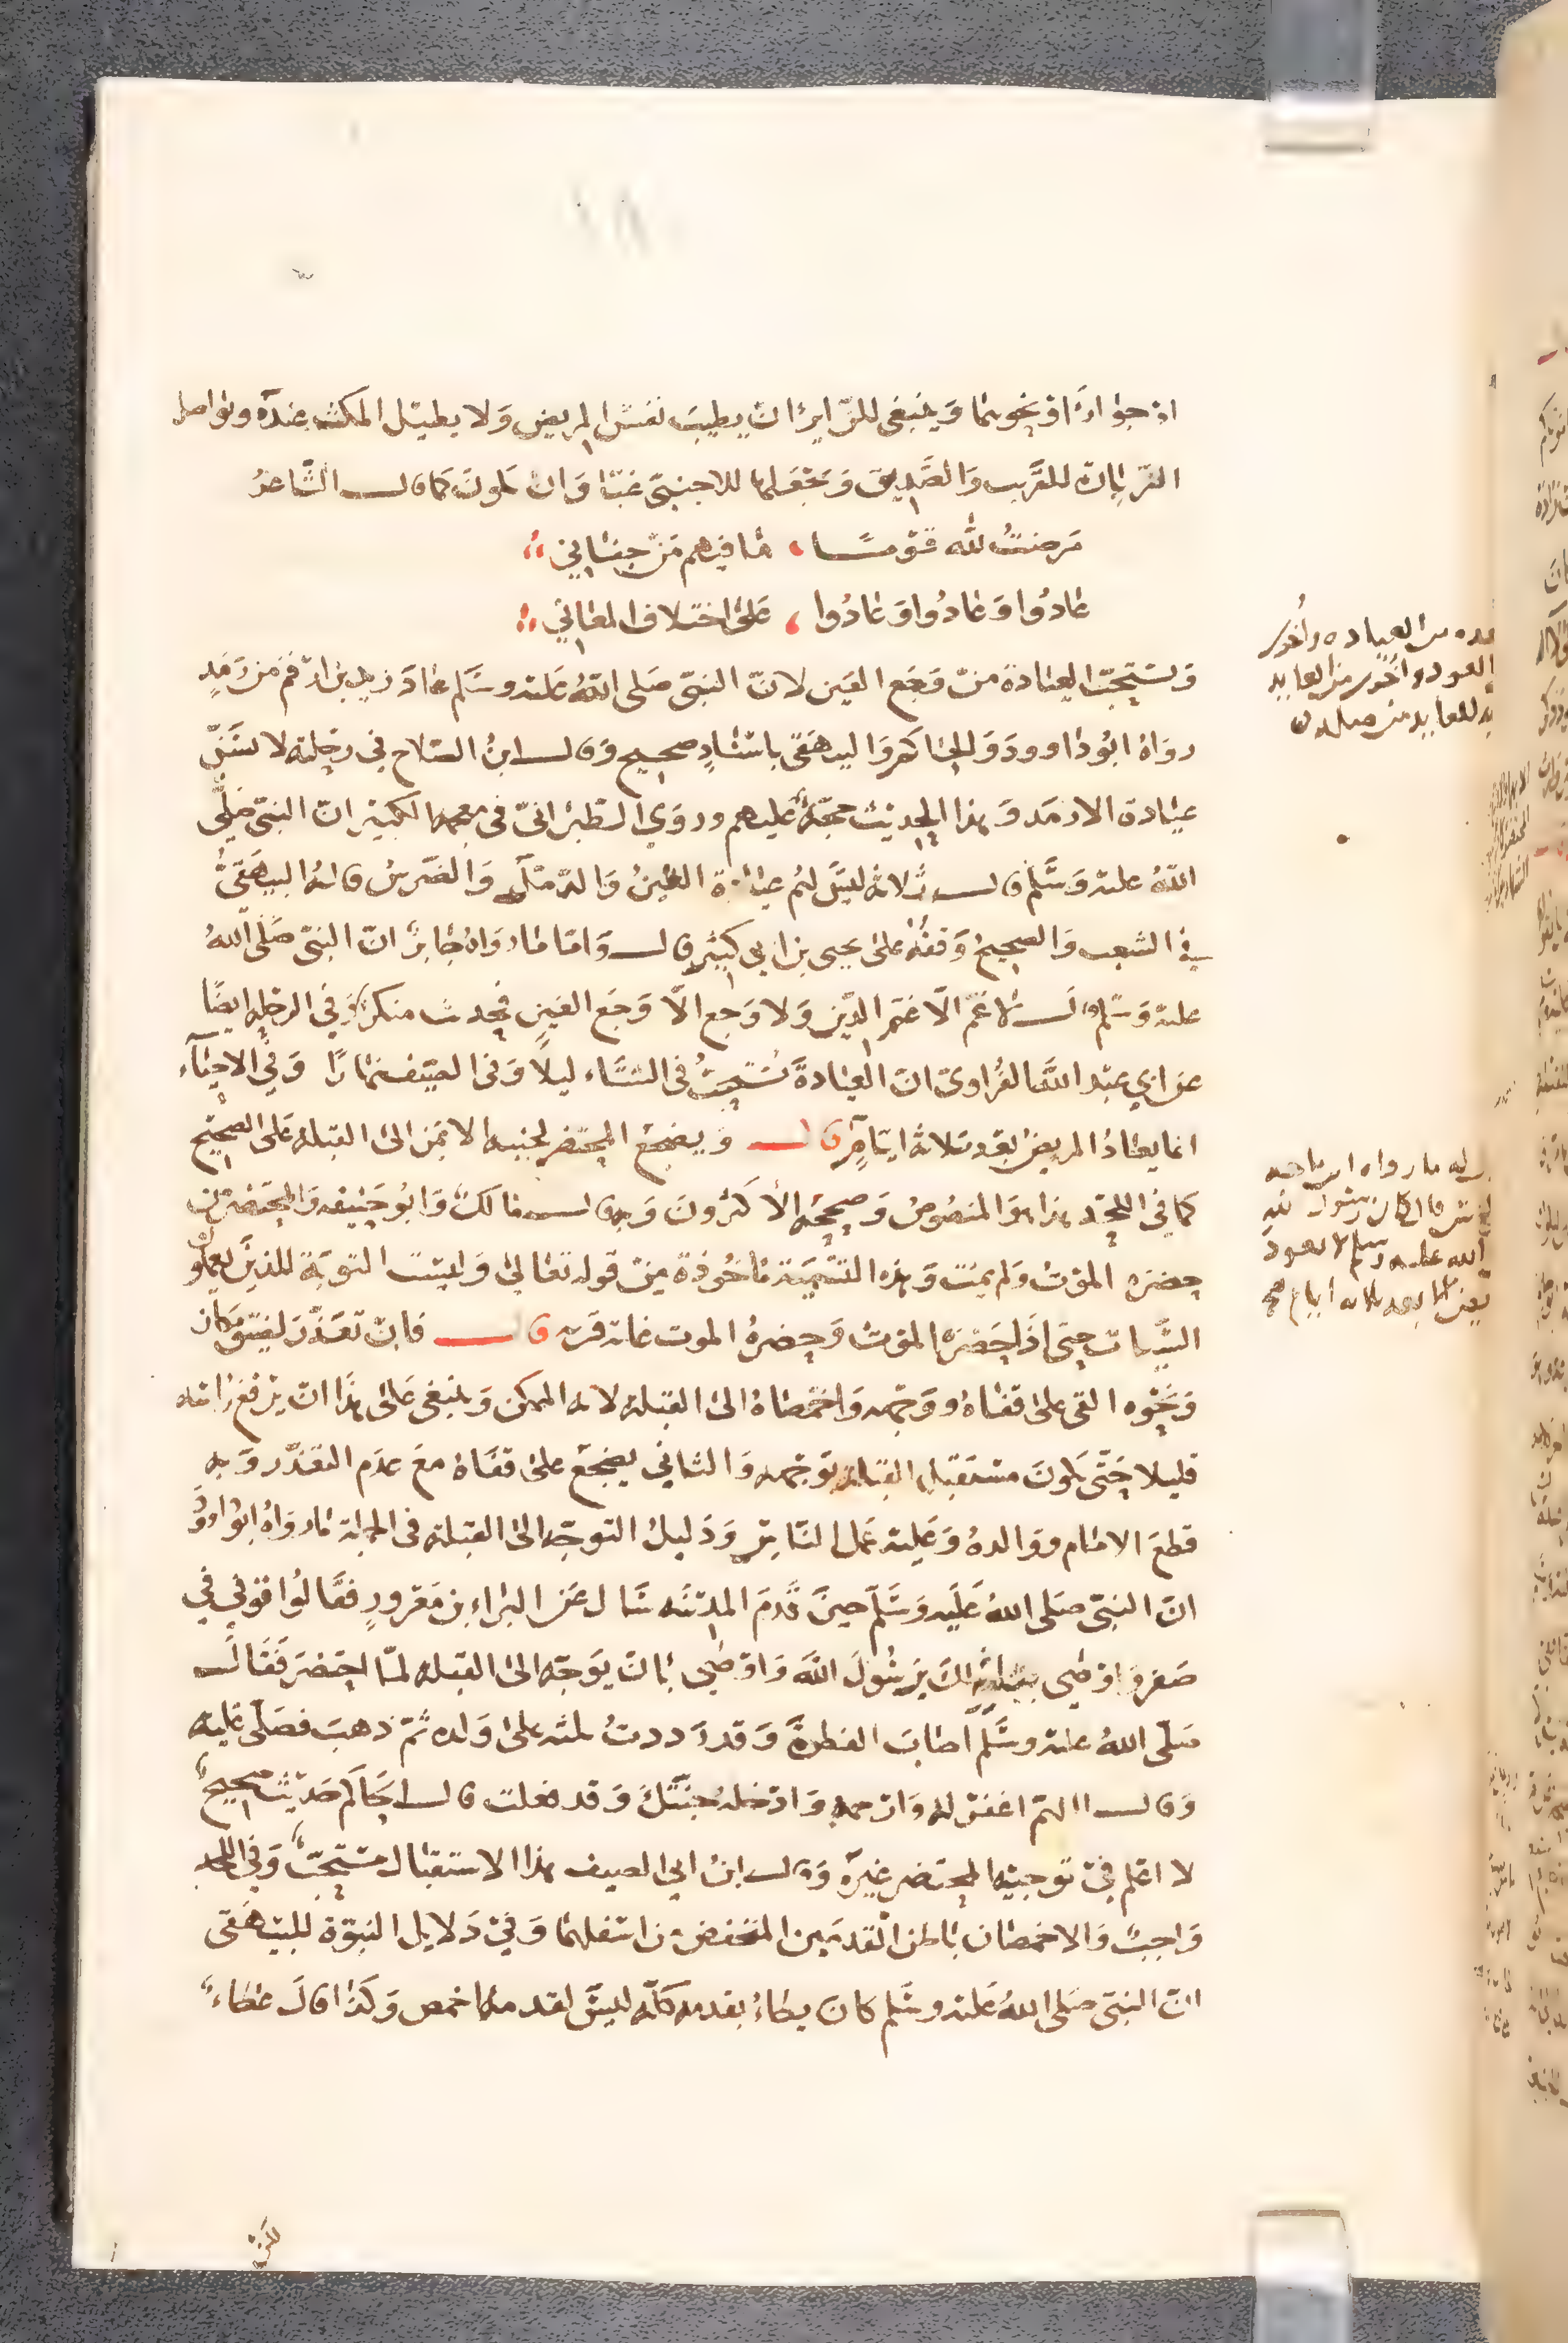 او جوار أو نحوهما وينبغي للزاير ان يطيب نفس المريض ولا يطيل المكث عنده ويواصل
الزيارة للقريب والصديق ويجعلها للاجنبي غبا وان يكون كما قال الشاعر
مرضت لله قوما ، ما فيهم من جفاني
عادوا وعادوا وعادوا ، على اختلاف المعاني
وتستحب العيادة من وجع العين لان النبي صلى الله عليه وسلم عاد زيد بن ارقم من رمد
رواه ابو داوود والحاكم والبيهقي باسناد صحيح وقال ابن الصلاح في رحلته لا تسن
عيادة الارمد وهذا الحديث حجة عليهم وروي الطبراني في معجمه الكبير ان النبي صلى
الله عليه وسلم قال ثلاثة ليس لهم عيادة العين والدمل والضرس قال البيهقي
في الشعب والصحيح وقفه على يحيى بن ابي كثير قال واما ما رواه جابر ان النبي صلى الله
عليه وسلم قال لا غم الا غم الدين ولا وجع الا وجع العين فحديث منكر وفي الرحلة ايضا
عن ابي عبد الله الفراوي ان العيادة تستحب في الشتاء ليلا وفي الصيف نهارا وفي الاحياء
انما يعاد المريض بعد ثلاثة ايام قال ويضجع المحتضر لجنبه الايمن الى القبلة على الصحيح
كما في اللحد هذا هو المنصوص وصححه الاكثرون وبه قال مالك وابو حنيفه والمحتضر من
حضره الموت ولم يمت وهذه التسمية ماخوذة من قوله تعالى وليست التوبة للذين يعملون
السيات حتى اذا حضر الموت وحضره الموت غايه قربه قال فان تعذر لضيق مكان
ونحوه القي على قفاه ووجهه واخمصاه الى القبلة لانه الممكن وينبغي على هذا ان يرفع راسه
قليلا حتى يكون مستقبل القبلة بوجهه والثاني يضجع على قفاه مع عدم التعذر وبه
قطع الامام ووالده وعليه عمل الناس ودليل التوجه الى القبلة في الجملة ما رواه ابو داود
ان النبي صلى الله عليه وسلم حين قدم المدينه سال عن البراء بن معرور فقالوا توفي في
صفر واوصى بثلثه لك يرسول الله واوصى بان يوجه الى القبلة لما احتضر فقال
صلى الله عليه وسلم اصاب الفطرة وقد رددت ثلثه على ولده ثم ذهب فصلى عليه
وقال اللهم اغفر له وارحمه وادخله جنتك وقد فعلت قال الحاكم حديث صحيح
لا اعلم في توجيه المحتضر غيره وقال ابن ابي الصيف هذا الاستقبال مستحب وفي اللحد
واجب والاخمصان باطن القدمين المنخفض من اسفلهما وفي دلايل النبوة للبيهقي
ان النبي صلى الله عليه وسلم كان يطاء بقدمه كله ليس لقدمه اخمص وكذا قال عطاء
من العياده وأخوس
العود واخوس من العايد
للعايد من
له ما رواه ابن ماجه
قال كان رسول الله
الله عليه وسلم لا يعود
الا بعد ثلاثة أيام